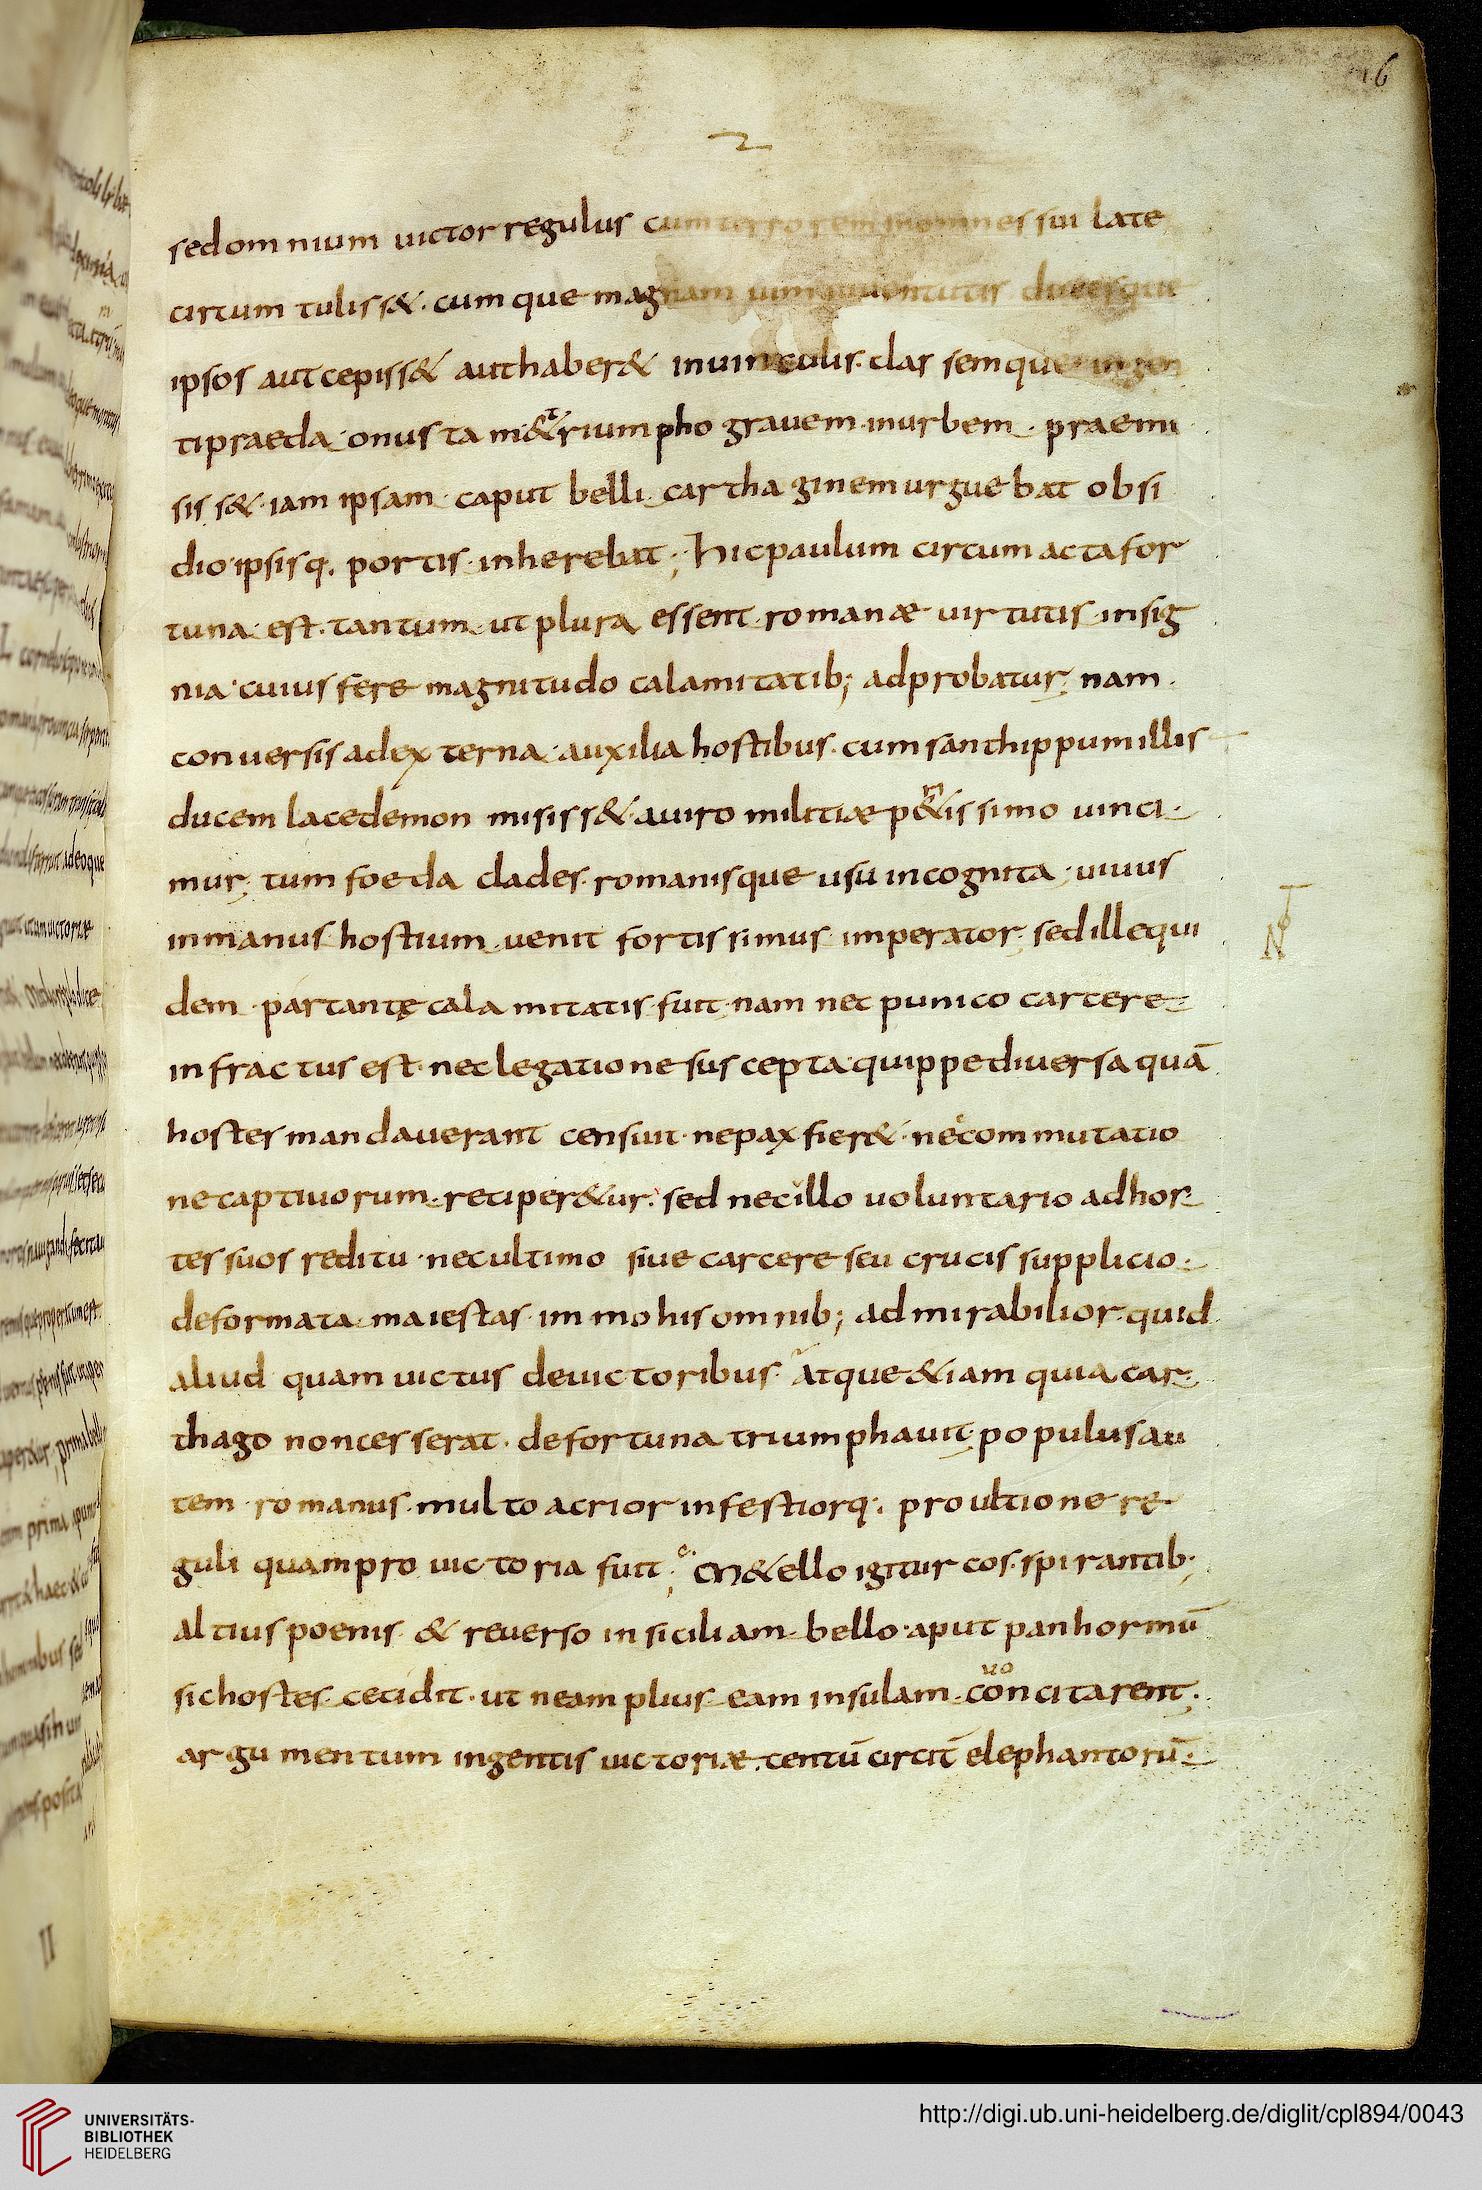 16
sed omnium uictor regulus cum terrorem nominis sui late
circum tuliss&. cum que magnam uim iuuentutis ducesque
ipsos aut cepiss& aut haber& in uinculis. clas semque ingen
ti praeda. onus tam &triumpho grauem. in urbem. praemi
sis s&. iam ipsam. caput belli carthaginem urguebat obsi
dio. ipsisq. portis. inherebat; hic paulum circum acta for
tuna. est. tantum. ut plura essent romanæ uirtutis. insig
nia. cuius fere magnitudo calamitatib; adprobatur; nam.
conuersis ad externa. auxilia hostibus. cum santhippum illis
ducem lacedemon misiss&. a uiro militiæ p&nissimo uinci.
mur; tum foeda clades. romanisque usu incognita. uiuus
in manus hostium. uenit fortissimus imperator; sed ille qui
dem. par tantę calamitatis fuit. nam nec punico carcere
infractus est. nec legatione suscepta. quippe diuersa quā
hostes mandauerant censuit. ne pax fier&. nec commutatio
ne captiuorum. reciper&ur. sed nec illo uoluntario ad hos
tes suos reditu. nec ultimo siue carcere seu crucis supplicio.
deformata maiestas. immo his omnib; admirabilior. quid
aliud quam uictus de uictoribus. atque &iam quia car
thago non cesserat. de fortuna triumphauit. populus au
tem romanus. multo acrior infestiorq. pro ultione re
guli quam pro uictoria fuit; M&ello igitur cos. spirantib;
altius poenis & reuerso in siciliam. bello. aput panhormū
sic hostes. cecidit. ut ne amplius eam insulam. concitarent.
uo
argumentum ingentis uictoriæ. centū circit̄ elephantorū.
UNIVERSITÄTS-
BIBLIOTHEK
HEIDELBERG
http://digi.ub.uni-heidelberg.de/diglit/cpl894/0043